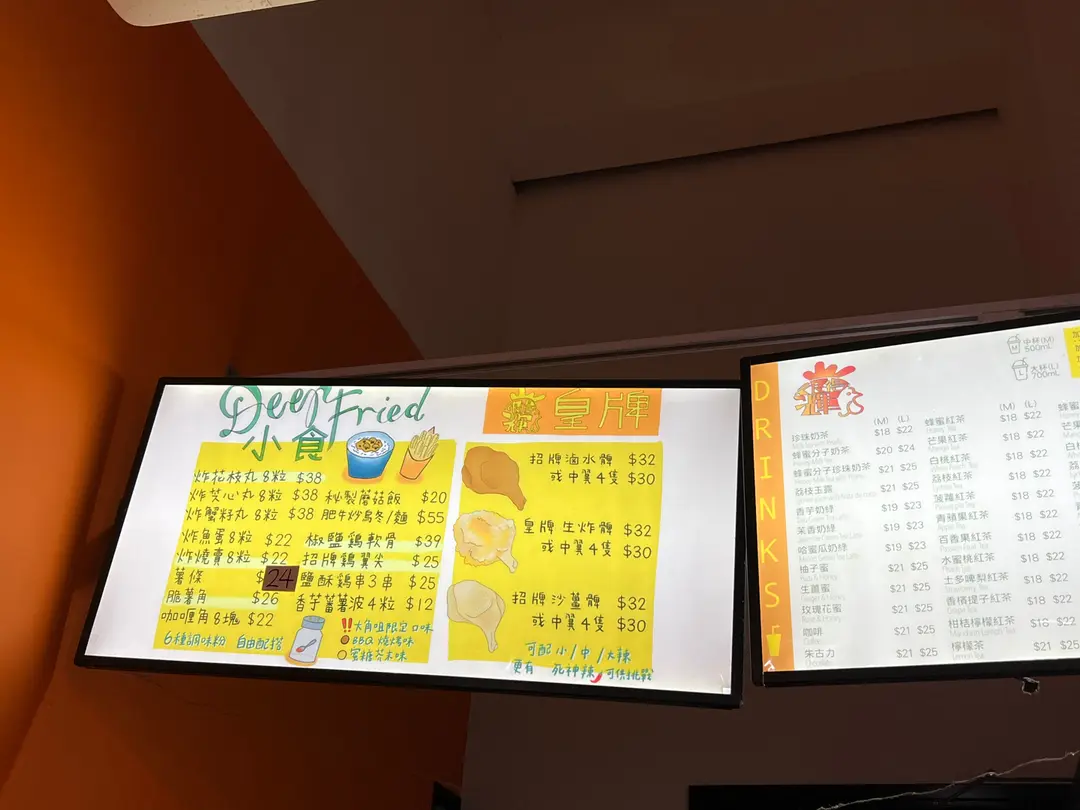 Deep Fried
小食
炸花枝丸8粒 $38
炸芝心丸8粒 $38
炸蟹籽丸8粒 $38
炸魚蛋8粒 $22
炸燒賣8粒 $22
薯條 $24
脆薯角 $26
咖喱角8塊 $22
6種調味粉 自由配搭
秘製蘑菇飯 $20
肥牛炒烏冬/麵 $55
椒鹽鷄軟骨 $39
招牌鷄翼尖 $25
鹽酥鷄串3串 $25
香芋蕃薯波4粒 $12
大角咀限定口味
BBQ 燒烤味
蜜糖芥末味
皇牌
招牌滷水髀 $32
或中翼4隻 $30
皇牌生炸髀 $32
或中翼4隻 $30
招牌沙薑髀 $32
或中翼4隻 $30
可配小/中/大辣
更有 死神辣 可供挑戰
DRINKS
中杯(M)
500mL
大杯(L)
700mL
(M) (L)
珍珠奶茶 $18 $22
蜂蜜分子奶茶 $20 $24
蜂蜜分子珍珠奶茶 $21 $25
荔枝玉露
香芋奶綠 $19 $23
茉香奶綠 $19 $23
哈蜜瓜奶綠 $19 $23
柚子蜜 $21 $25
生薑蜜 $21 $25
玫瑰花蜜 $21 $25
咖啡 $21 $25
朱古力 $21 $25
(M) (L)
蜂蜜紅茶 $18 $22
芒果紅茶 $18 $22
白桃紅茶 $18 $22
荔枝紅茶 $18 $22
菠蘿紅茶 $18 $22
青蘋果紅茶 $18 $22
百香果紅茶 $18 $22
水蜜桃紅茶 $18 $22
土多啤梨紅茶 $18 $22
香檳提子紅茶 $18 $22
柑桔檸檬紅茶 $18 $22
檸檬茶 $21 $25